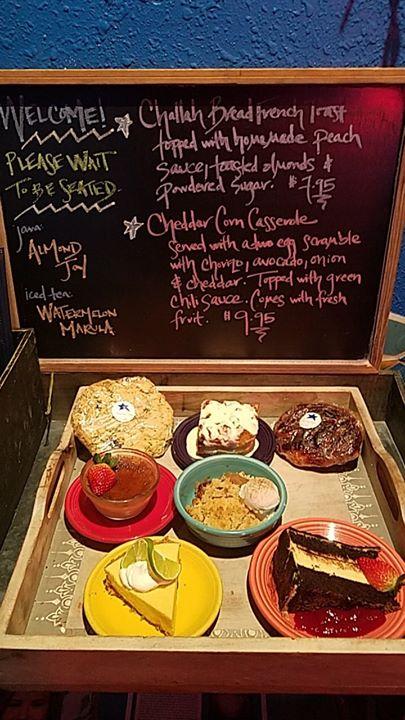 WELCOME!
PLEASE WAIT
TO BE SEATED
java:
ALMOND
JOY
iced tea:
WATERMELON
MARULA
Challah Bread French Toast
topped with homemade peach
sauce, toasted almonds &
powdered sugar. $7.95
Cheddar Corn Casserole
Served with a two egg scramble
with chorizo, avocado, onion
& cheddar. Topped with green
chili sauce. Comes with fresh
fruit. $9.95